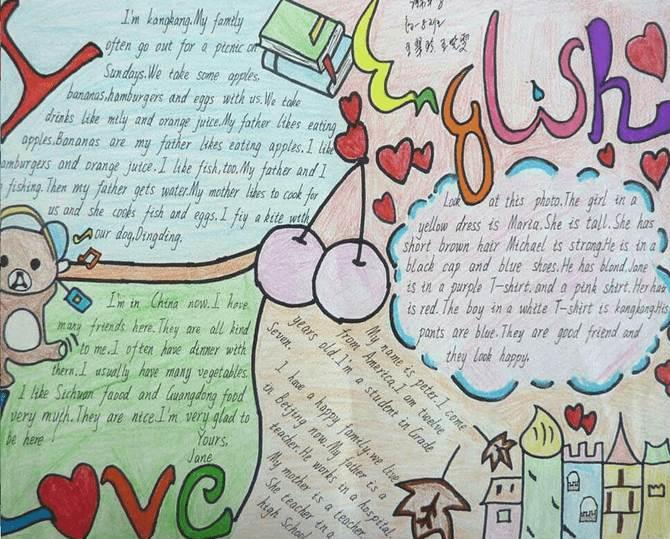 English
I'm kangkang.My family
often go out for a picnic on
Sundays.We take some apples,
bananas,hamburgers and eggs with us.We take
drinks like mily and orange juice.My father likes eating
apples.Bananas are my father likes eating apples.I like
hamburgers and orange juice.I like fish,too.My father and I
fishing.Then my father gets water.My mother likes to cook for
us and she cooks fish and eggs.I fiy a kite with
our dog,Dingding.
Look at this photo.The girl in a
yellow dress is Maria.She is tall.She has
short brown hair Michael is strong.He is in a
black cap and blue shoes.He has blond.Jane
is in a purple T-shirt.and a pink shirt.Her hair
is red.The boy in a white T-shirt is kangkong.His
pants are blue.They are good friend and
they look happy.
I'm in China now.I have
many friends here.They are all kind
to me.I often have dinner with
them.I usually have many vegetables.
I like Sichuan faood and Guangdong food
very much.They are nice.I'm very glad to
be here
Yours,
Jane
My name is peter.I come
from America.I am twelve
years old.I'm a student in Grade
Seven.
I have a happy family.we live
in Beijing now.My father is a
teacher.He works in a hospital.
My mother is a teacher
She teacher in a
high School
Love